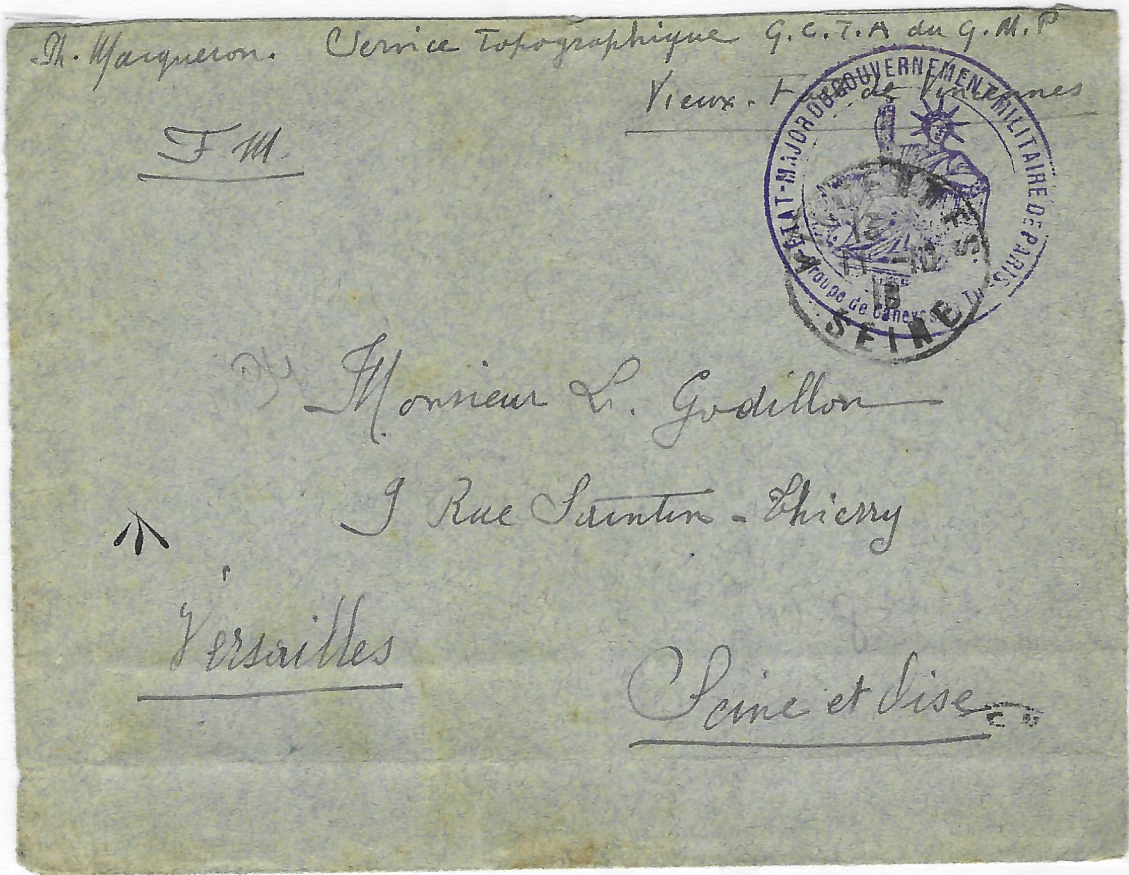 Th. Marqueron. Service Topographique G.C.T.A du G.M.P
Vieux-Fort de Vincennes
F M.
ETAT-MAJOR DU GOUVERNEMENT MILITAIRE DE PARIS
Groupe de Canevas de Tir
13
11 -10
18
SEINE
Monsieur L. Godillon
9 Rue Saintin-Thierry
Versailles
Seine et Oise